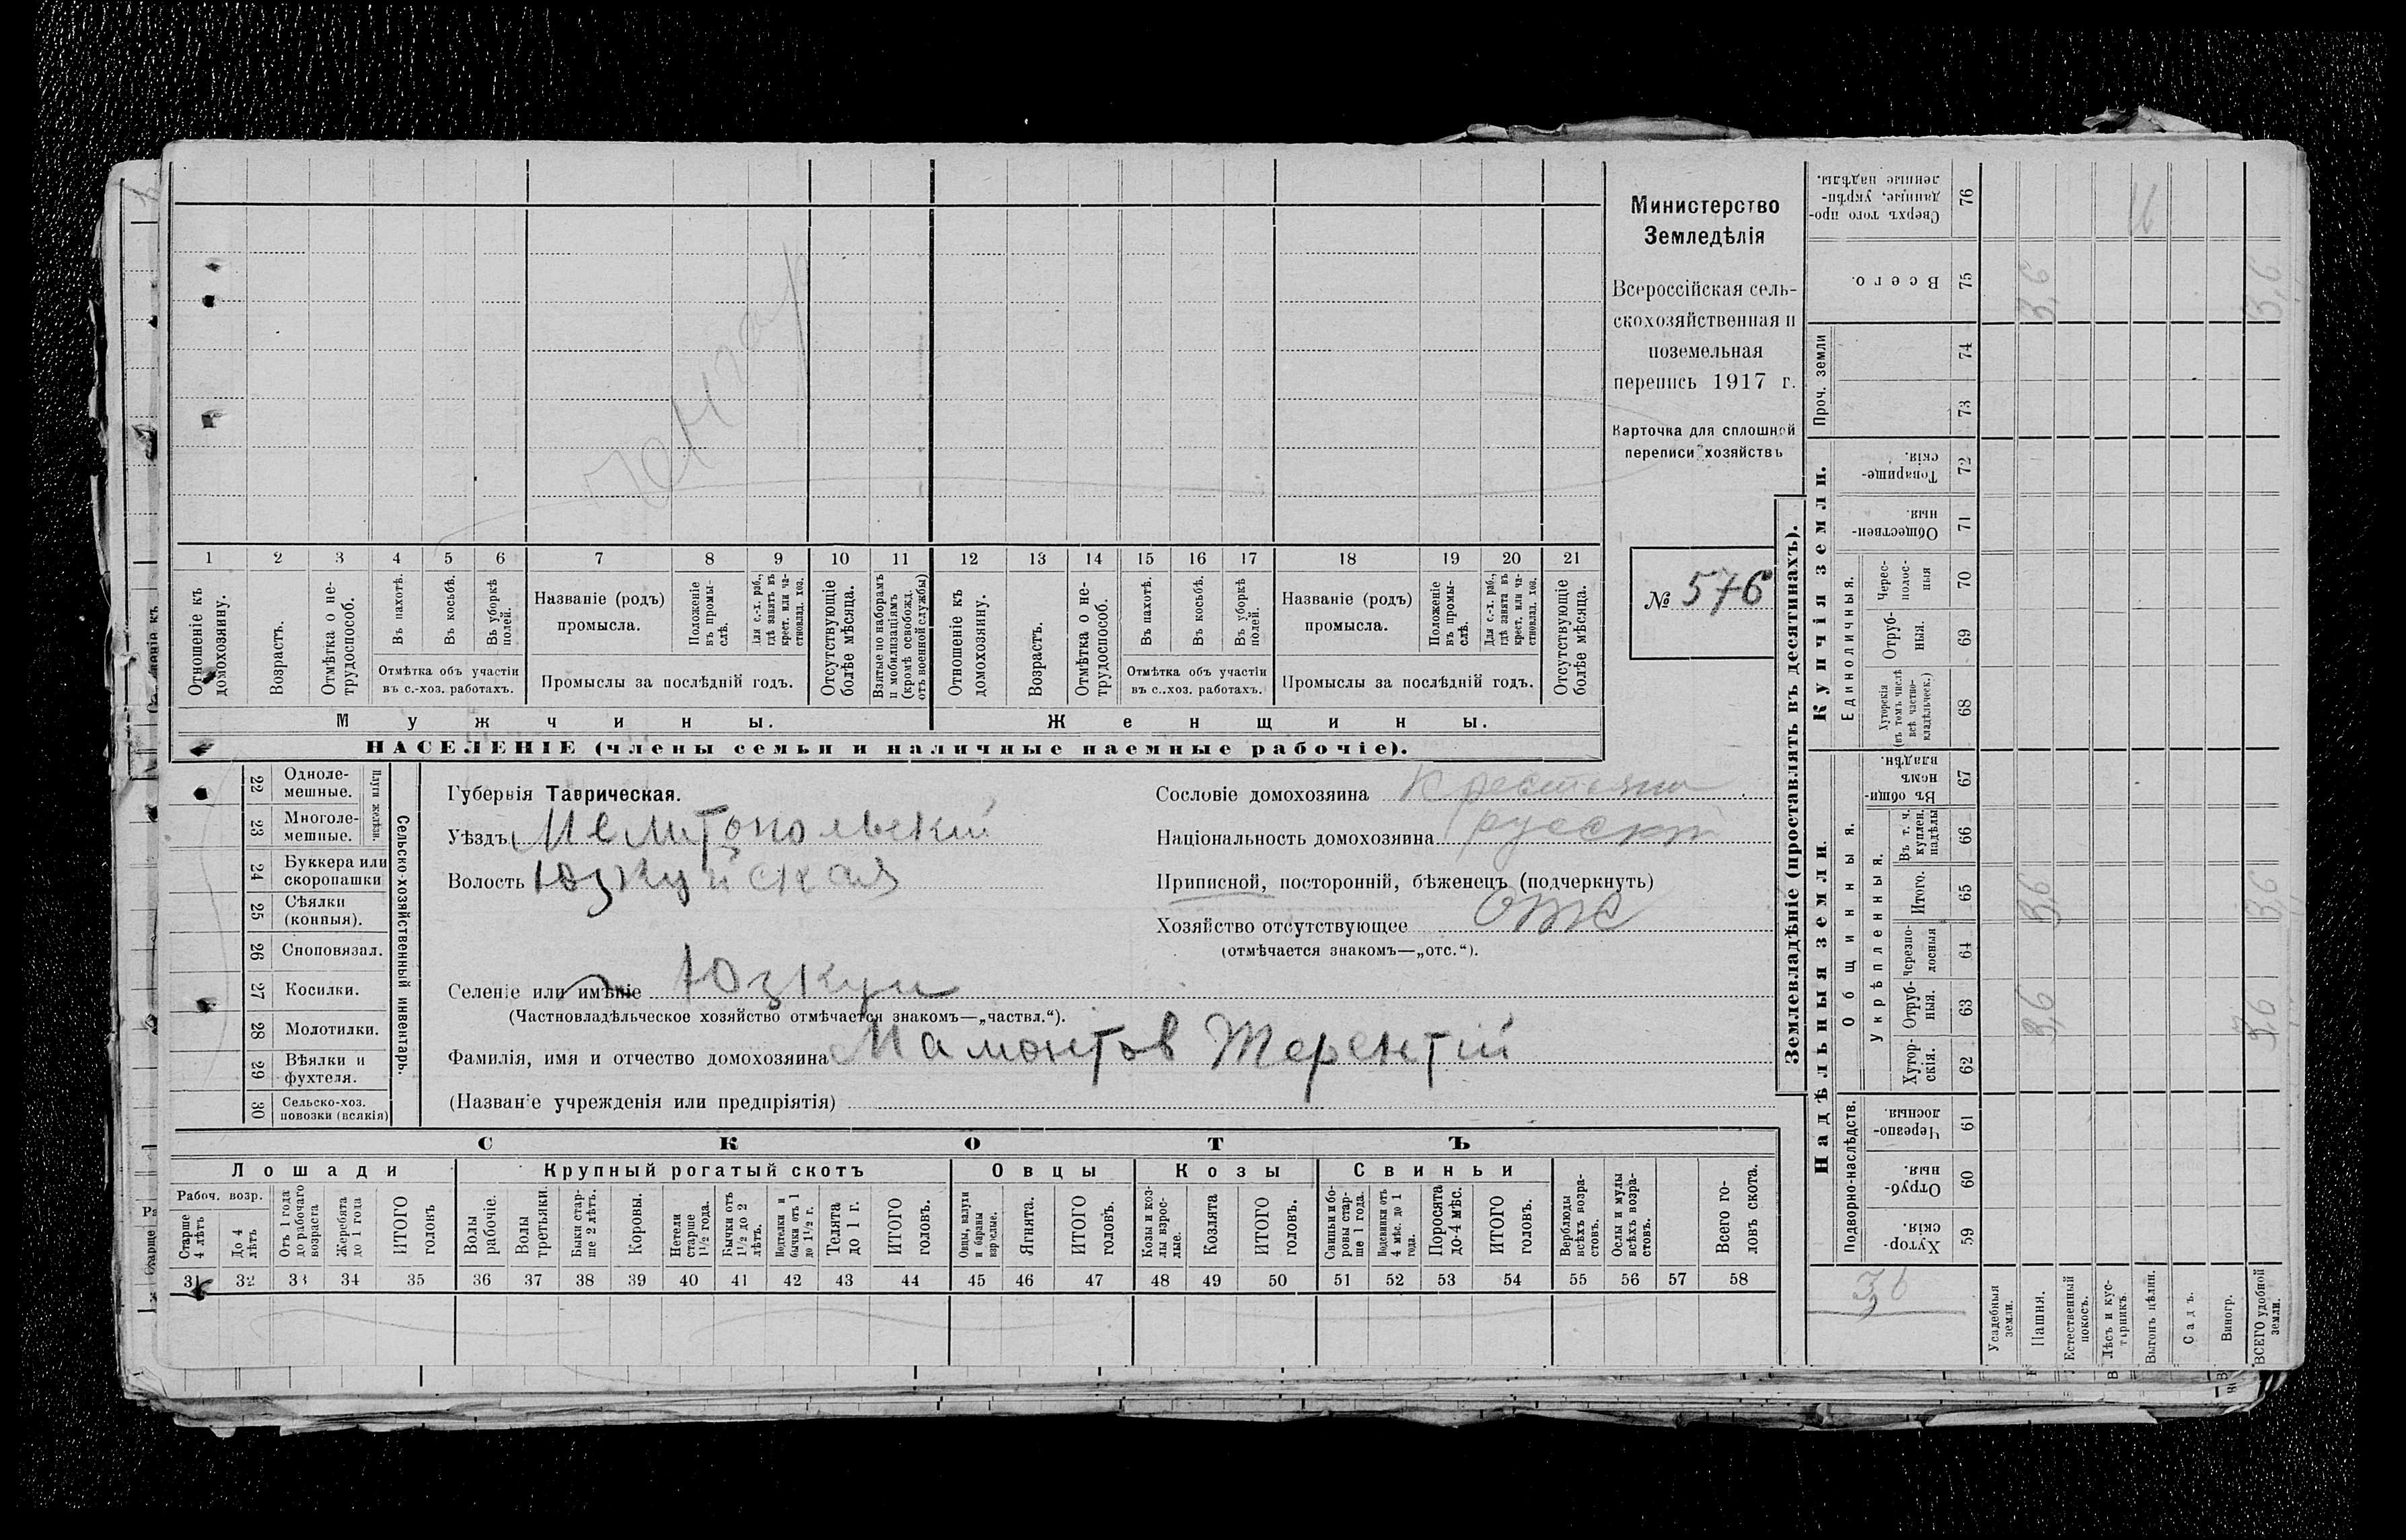 Министерство
Земледѣлія
Всероссійская сель-
скохозяйственная и
поземельная
перепись 1917 г.
Карточка для сплошной
переписи хозяйствъ
№ 576
1 2 3 4 5 6 7 8 9 10 11 12 13 14 15 16 17 18 19 20 21
Отношеніе къ домохозяину.
Возрастъ.
Отмѣтка о не-трудоспособ.
Въ пахотѣ.
Въ косьбѣ.
Въ уборкѣ полей.
Отмѣтка объ участіи
въ с.-хоз. работахъ.
Названіе (родъ)
промысла.
Положеніе въ промы-слѣ.
Для с.-х. раб., гдѣ занятъ въ крест. или ча-стновлад. хоз.
Промыслы за послѣдній годъ.
Отсутствующіе болѣе мѣсяца.
Взятые по наборамъ и мобилизаціямъ (кромѣ освобожд. отъ военной службы)
Отношеніе къ домохозяину.
Возрастъ.
Отмѣтка о не-трудоспособ.
Въ пахотѣ.
Въ косьбѣ.
Въ уборкѣ полей.
Отмѣтка объ участіи
въ с..хоз. работахъ.
Названіе (родъ)
промысла.
Положеніе въ промы-слѣ.
Для с.-х. раб., гдѣ занята въ крест. или ча-стновлад. хоз.
Промыслы за послѣдній годъ.
Отсутствующіе болѣе мѣсяца.
Мужчины.
Женщины.
НАСЕЛЕНІЕ (члены семьи и наличные наемные рабочіе).
Сельско-хозяйственный инвентарь.
Плуги желѣзн.
22 Одноле-
мешные.
23 Многоле-
мешные.
24 Буккера или
скоропашки
25 Сѣялки
(конныя).
26 Сноповязал.
27 Косилки.
28 Молотилки.
29 Вѣялки и
фухтеля.
30 Сельско-хоз.
повозки (всякія)
Губернія Таврическая.
Уѣздъ Мелитопольскій
Волость Юзкуйская
Сословіе домохозяина Крестьянин
Національность домохозяина русскій
Приписной, посторонній, бѣженецъ (подчеркнуть)
Хозяйство отсутствующее отс
(отмѣчается знакомъ—„отс.“).
Селеніе или имѣніе Юзкуи
(Частновладѣльческое хозяйство отмѣчается знакомъ—„частвл.“).
Фамилія, имя и отчество домохозяина Мамонтов Терентій
(Названіе учрежденія или предпріятія)
СКОТЪ
Лошади
Крупный рогатый скотъ
Овцы
Козы
Свиньи
Рабоч. возр.
Старше 4 лѣтъ
До 4 лѣтъ
Отъ 1 года до рабочаго возраста
Жеребята до 1 года
ИТОГО головъ
Волы рабочіе.
Волы третьяки.
Быки стар-ше 2 лѣтъ.
Коровы.
Нетели старше 1½ года.
Бычки отъ 1½ до 2 лѣтъ.
Подтелки и бычки отъ 1 до 1½ г.
Телята до 1 г.
ИТОГО головъ.
Овцы, валухи и бараны взрослые.
Ягнята.
ИТОГО головъ.
Козы и коз-лы взрос-лые.
Козлята
ИТОГО головъ.
Свиньи и бо-ровы стар-ше 1 года.
Подсвинки отъ 4 мѣс. до 1 года.
Поросята до-4 мѣс.
ИТОГО головъ.
Верблюды всѣхъ возра-стовъ.
Ослы и мулы всѣхъ возра-стовъ.
Всего го-ловъ скота.
31 32 33 34 35 36 37 38 39 40 41 42 43 44 45 46 47 48 49 50 51 52 53 54 55 56 57 58
Землевладѣніе (проставлять въ десятинахъ).
Надѣльныя земли.
Подворно-наслѣдств.
Хутор-скія. 59
Отруб-ныя. 60
Черезпо-лосныя. 61
Общинныя.
Укрѣпленныя.
Хутор-скія. 62
Отруб-ныя. 63
Черезпо-лосныя 64
Итого. 65
Въ т. ч. куплен. надѣлы 66
Въ общин-номъ владѣн. 67
Купчія земли.
Единоличныя.
Хуторскія (въ томъ числѣ всѣ частно-владѣльческ.) 68
Отруб-ныя. 69
Черес-полос-ныя 70
Обществен-ныя. 71
Товарище-скія. 72
Проч. земли
73 74
Всего. 75
Сверхъ того про-данные, укрѣп-ленные надѣлы. 76
Усадебныя земли.
Пашня. 3,6 3,6 3,6
Естественный покосъ.
Лѣсъ и кус-тарникъ.
Выгонъ цѣлин.
Садъ.
Виногр.
ВСЕГО удобной земли. 3,6 3,6 3,6